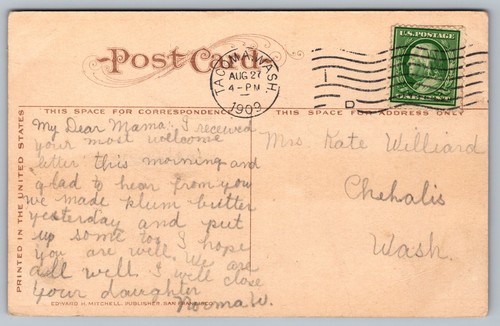 Post Card
TACOMA, WASH.
AUG 27
4-PM
1909
1
D
U.S. POSTAGE
ONE CENT
THIS SPACE FOR CORRESPONDENCE
THIS SPACE FOR ADDRESS ONLY
PRINTED IN THE UNITED STATES
My Dear Mama; I received
your most welcome
letter this morning and
glad to hear from you
we made plum butter
yesterday and put
up some too I hope
you are well. We are
all well. I will close
Your daughter
Norma W.
Mrs. Kate Williard
Chehalis
Wash.
EDWARD H. MITCHELL, PUBLISHER, SAN FRANCISCO